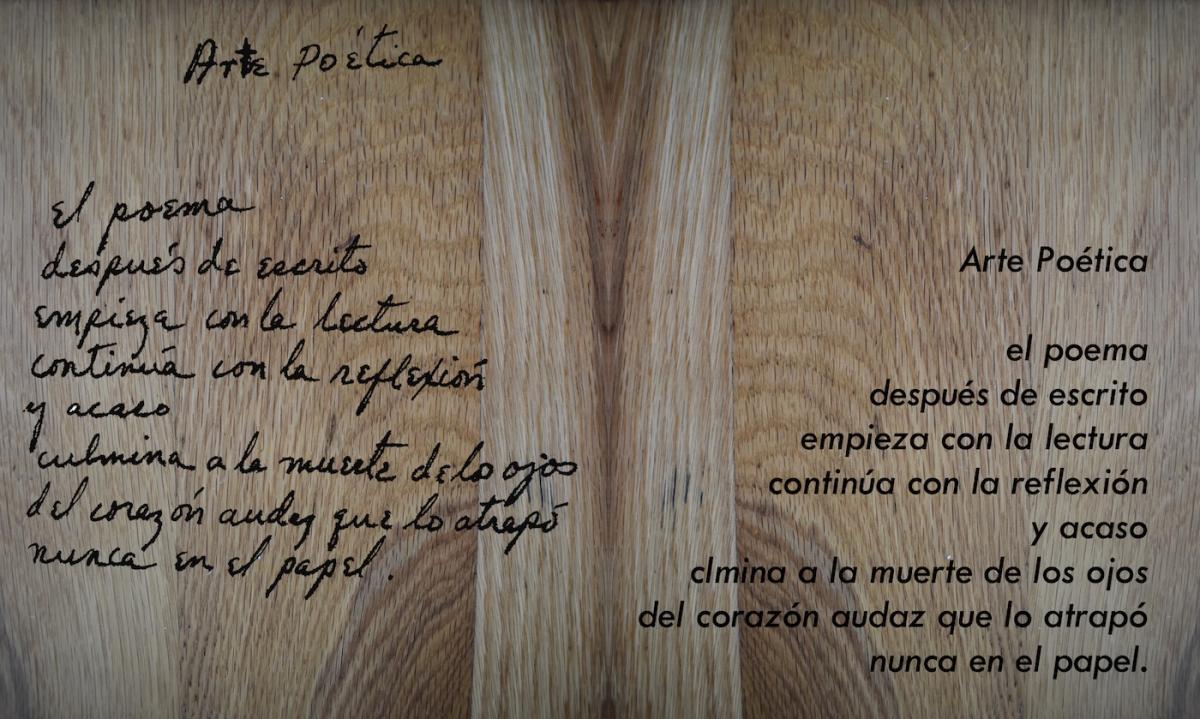 Arte Poética
el poema
después de escrito
empieza con la lectura
continúa con la reflexión
y acaso
culmina a la muerte de lo ojos
del corazón audaz que lo atrapó
nunca en el papel.
Arte Poética
el poema
después de escrito
empieza con la lectura
continúa con la reflexión
y acaso
clmina a la muerte de los ojos
del corazón audaz que lo atrapó
nunca en el papel.